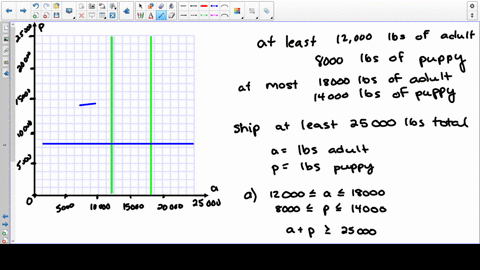 p
25000
20000
15000
10000
5000
0
5000
10000
15000
20000
25000
a
at least 12,000 lbs of adult
8000 lbs of puppy
at most 18000 lbs of adult
14000 lbs of puppy
ship at least 25000 lbs total
a = lbs adult
p = lbs puppy
a) 12000 ≤ a ≤ 18000
8000 ≤ p ≤ 14000
a+p ≥ 25000